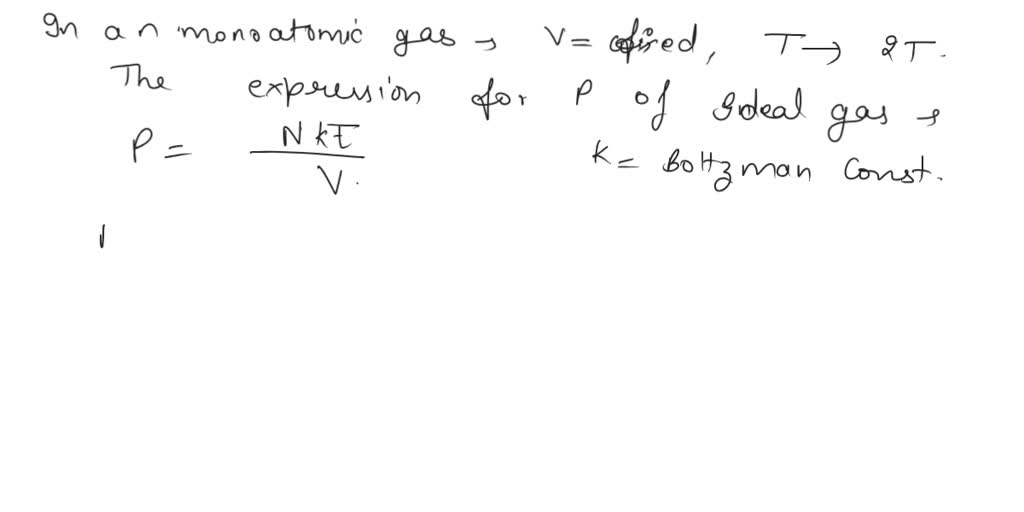 In an monoatomic gas, V = fixed, T → 2T.
The expression for P of Ideal gas,
P = NkT / V. K = Boltzman Const.